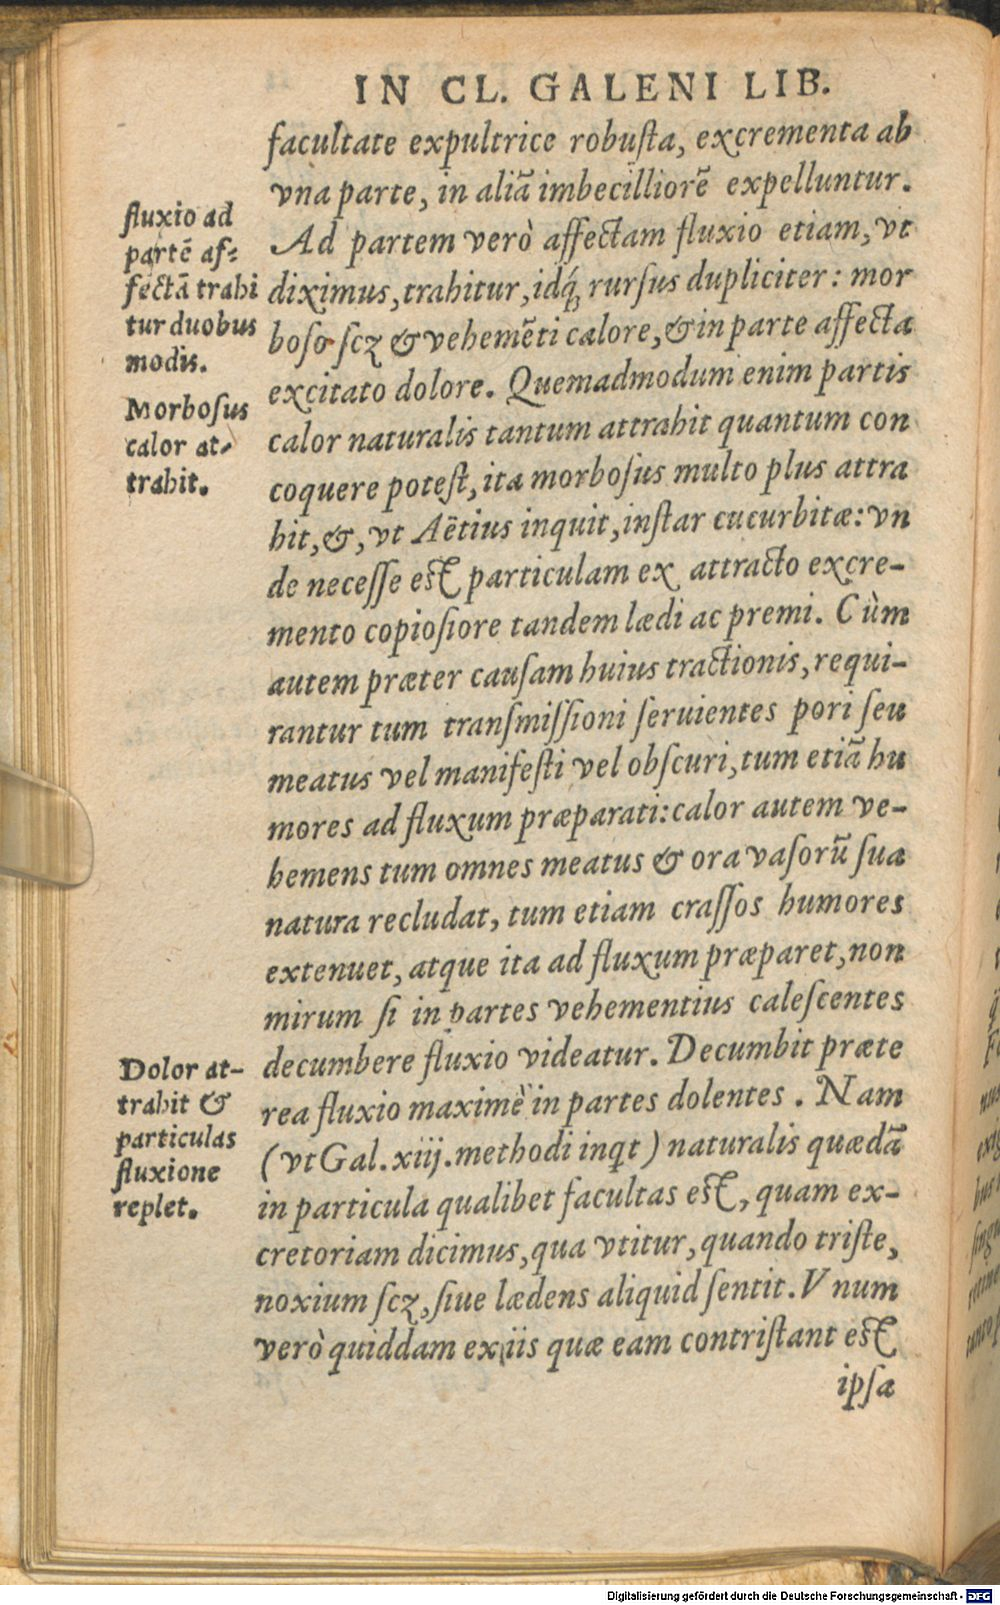 IN CL. GALENI LIB.
facultate expultrice robusta, excrementa ab
vna parte, in aliā imbecilliorē expelluntur.
Ad partem verò affectam fluxio etiam, vt
diximus, trahitur, idq́; rursus dupliciter: mor
boso scꝫ & vehemēti calore, & in parte affecta
excitato dolore. Quemadmodum enim partis
calor naturalis tantum attrahit quantum con
coquere potest, ita morbosus multo plus attra
hit, &, vt Aëtius inquit, instar cucurbitæ: vn
de necesse est particulam ex attracto excre-
mento copiosiore tandem lædi ac premi. Cùm
autem præter causam huius tractionis, requi-
rantur tum transmissioni seruientes pori seu
meatus vel manifesti vel obscuri, tum etiā hu
mores ad fluxum præparati: calor autem ve-
hemens tum omnes meatus & ora vasorū sua
natura recludat, tum etiam crassos humores
extenuet, atque ita ad fluxum præparet, non
mirum si in partes vehementius calescentes
decumbere fluxio videatur. Decumbit præte
rea fluxio maximè in partes dolentes. Nam
(vt Gal. xiij. methodi inqt) naturalis quædā
in particula qualibet facultas est, quam ex-
cretoriam dicimus, qua vtitur, quando triste,
noxium scꝫ, siue lædens aliquid sentit. Vnum
verò quiddam ex iis quæ eam contristant est
ipsa
fluxio ad
partē af-
fectā trahi
tur duobus
modis.
Morbosus
calor at-
trahit.
Dolor at-
trahit &
particulas
fluxione
replet.
Digitalisierung gefördert durch die Deutsche Forschungsgemeinschaft - DFG